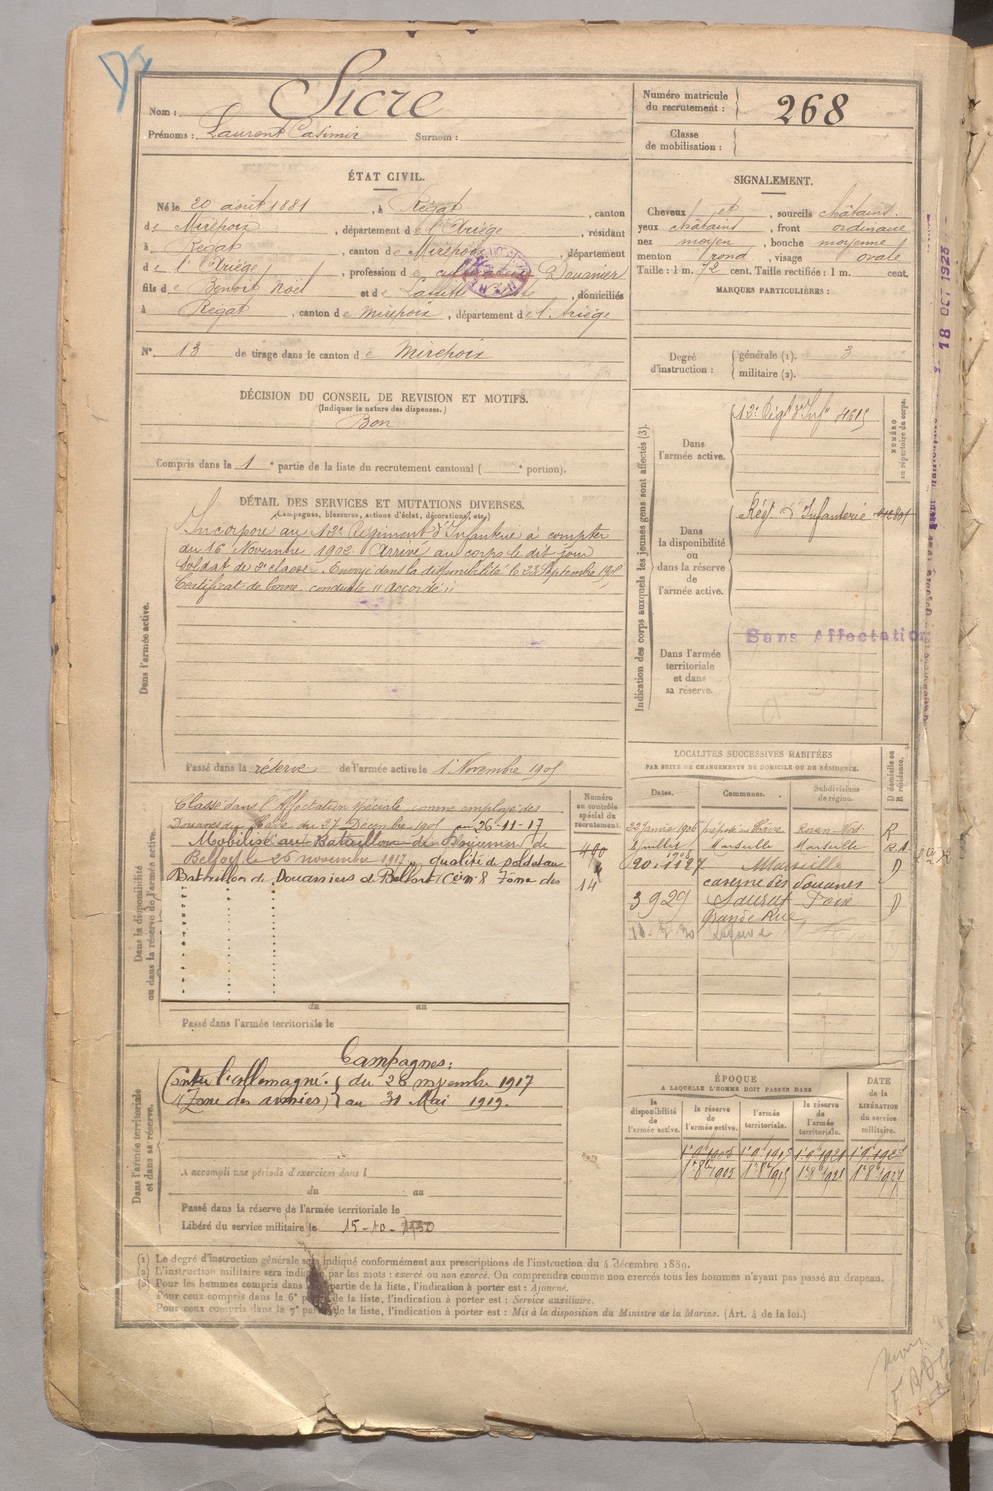 Nom : Sicre
Prénoms : Laurent Casimir Surnom :
Numéro matricule
du recrutement : 268
Classe
de mobilisation :
ÉTAT CIVIL.
Né le 20 août 1881, à Régat, canton
de Mirepoix, département de l'Ariège, résidant
à Régat, canton de Mirepoix, département
de l'Ariège, profession de Douanier
fils de Benoit Noël et de, domiciliés
à Régat, canton de Mirepoix, département de l'Ariège
N° 13 de tirage dans le canton de Mirepoix
SIGNALEMENT.
Cheveux et, sourcils châtains.
yeux châtains, front ordinaire
nez moyen, bouche moyenne
menton rond, visage ovale
Taille : 1 m. 72 cent. Taille rectifiée : 1 m. cent.
MARQUES PARTICULIÈRES :
Degré
d'instruction :
générale (1). 3
militaire (2).
DÉCISION DU CONSEIL DE REVISION ET MOTIFS.
(Indiquer la nature des dispenses.)
Bon
Compris dans la 1e partie de la liste du recrutement cantonal ( e portion).
DÉTAIL DES SERVICES ET MUTATIONS DIVERSES.
(Campagnes, blessures, actions d'éclat, décorations, etc.)
Dans l'armée active.
Incorporé au 12e Régiment d'Infanterie à compter
du 16 Novembre 1902 Arrivé au corps le dit jour
Soldat de 2e classe. Envoyé dans la disponibilité le 23 Septembre 1905
Certificat de bonne conduite "accordé"
Passé dans la réserve de l'armée active le 1 Novembre 1905
Indication des corps auxquels les jeunes gens sont affectés (3).
Dans
l'armée active.
12e Régt d'Infie 4615
NUMÉRO
au répertoire du corps.
Dans
la disponibilité
ou
dans la réserve
de
l'armée active.
Régt d'Infanterie
Dans l'armée
territoriale
et dans
sa réserve.
Sans Affectation
18 OCT 1925
Dans la disponibilité
ou dans la réserve de l'armée active.
Classé dans l'Affectation spéciale comme employé des
Douanes du Havre du 27 Décembre 1905 au 26-11-17
Mobilisé au Bataillon de Douaniers de
Belfort le 26 novembre 1917, qualité de soldat au
Bataillon de Douaniers de Belfort Zone des
du au
Passé dans l'armée territoriale le
Numéro
au contrôle
spécial du
recrutement.
400
14
LOCALITÉS SUCCESSIVES HABITÉES
PAR SUITE DE CHANGEMENTS DE DOMICILE OU DE RÉSIDENCE.
Dates. Communes. Subdivisions
de région. D domicile ou
R résidence.
22 Janvier 1906 préposé au Havre Rouen Nord R
Juillet Marseille Marseille
20 1127 Marseille D
caserne des douanes
3 9 29 Saurat Foix D
Grande Rue
Dans l'armée territoriale
et dans sa réserve.
Campagnes :
Contre l'Allemagne. du 26 novembre 1917
(Zone des armées) au 31 Mai 1919.
A accompli une période d'exercices dans l
du au
Passé dans la réserve de l'armée territoriale le
Libéré du service militaire le 15-10-
ÉPOQUE
A LAQUELLE L'HOMME DOIT PASSER DANS
DATE
de la
LIBÉRATION
du service
militaire.
la
disponibilité
de
l'armée active.
la réserve
de
l'armée active.
l'armée
territoriale.
la réserve
de
l'armée
territoriale.
1er 9bre 1905 1er 9bre 1915 1er 9bre 1921 1er 9bre 1927
1er 8bre 1905 1er 8bre 1915 1er 8bre 1921 1er 8bre 1927
(1) Le degré d'instruction générale sera indiqué conformément aux prescriptions de l'instruction du 4 décembre 1889.
(2) L'instruction militaire sera indiquée par les mots : exercé ou non exercé. On comprendra comme non exercés tous les hommes n'ayant pas passé au drapeau.
(3) Pour les hommes compris dans la partie de la liste, l'indication à porter est : Ajourné.
Pour ceux compris dans la 6e partie de la liste, l'indication à porter est : Service auxiliaire.
Pour ceux compris dans la 7e partie de la liste, l'indication à porter est : Mis à la disposition du Ministre de la Marine. (Art. 4 de la loi.)